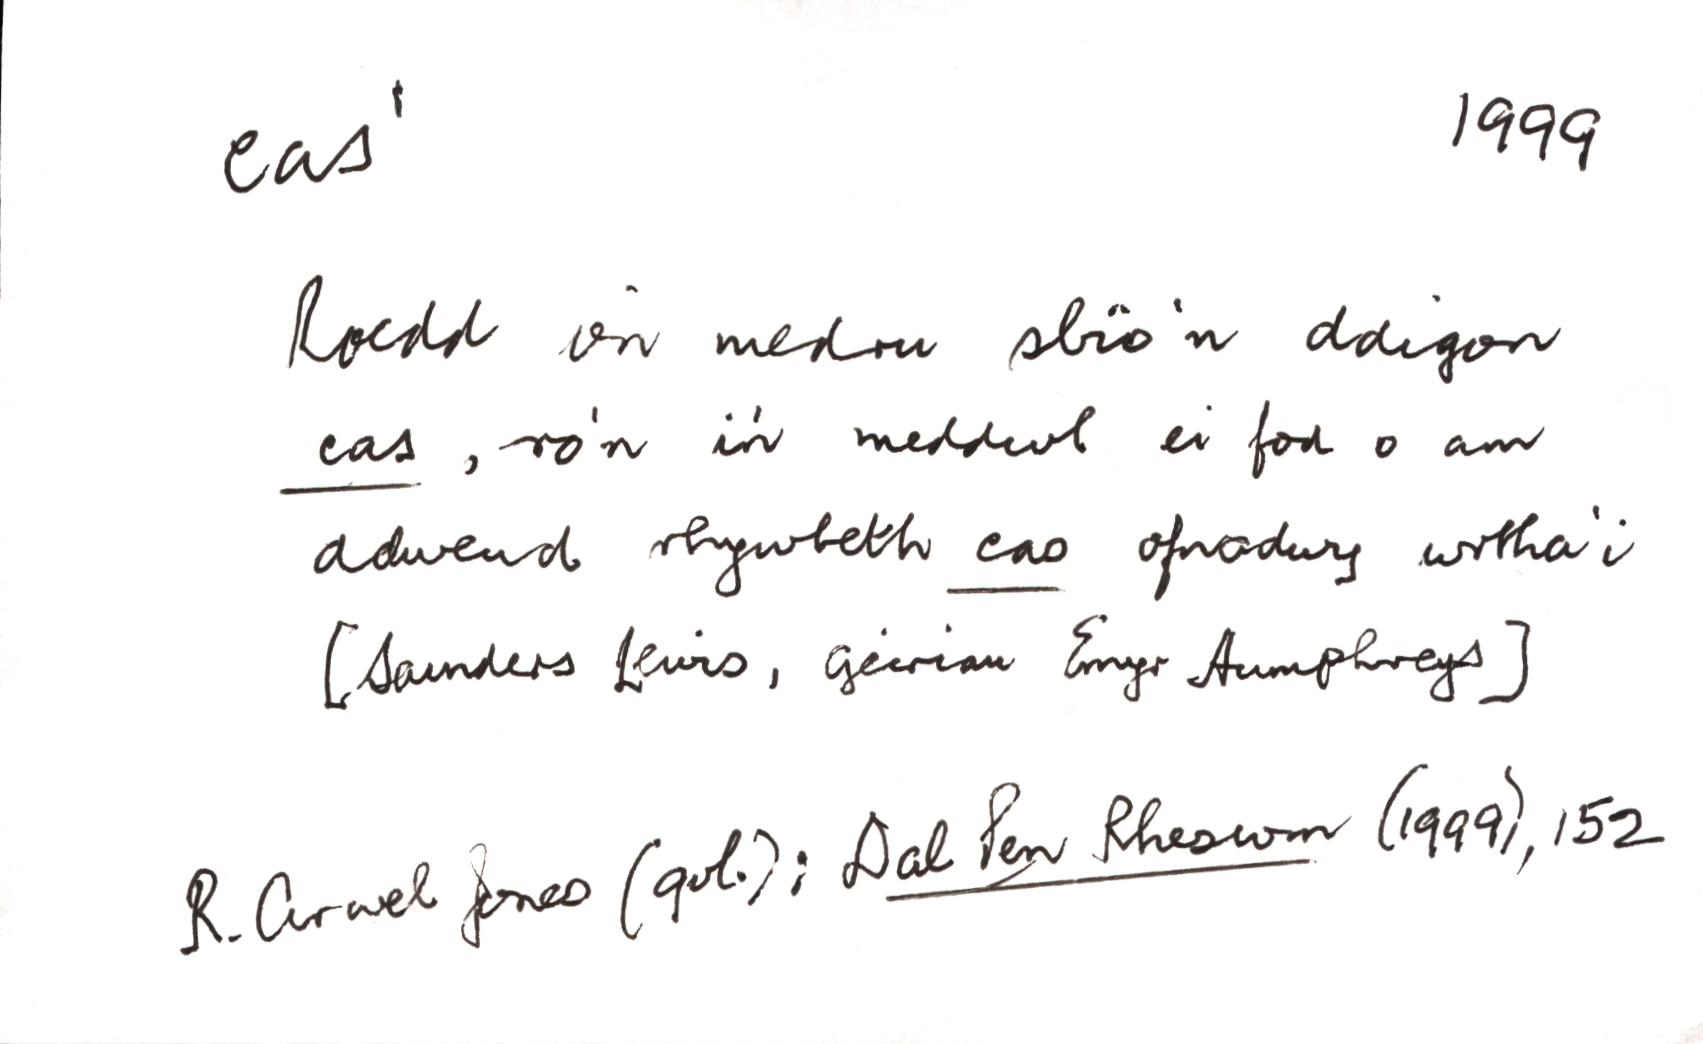 cas¹ 1999
Roedd o'n medru sbïo'n ddigon
cas, ro'n i'n meddwl ei fod o am
ddweud rhywbeth cas ofnadwy wrtha'i
[Saunders Lewis, geiriau Emyr Humphreys]
R. Arwel Jones (gol.): Dal Pen Rheswm (1999), 152